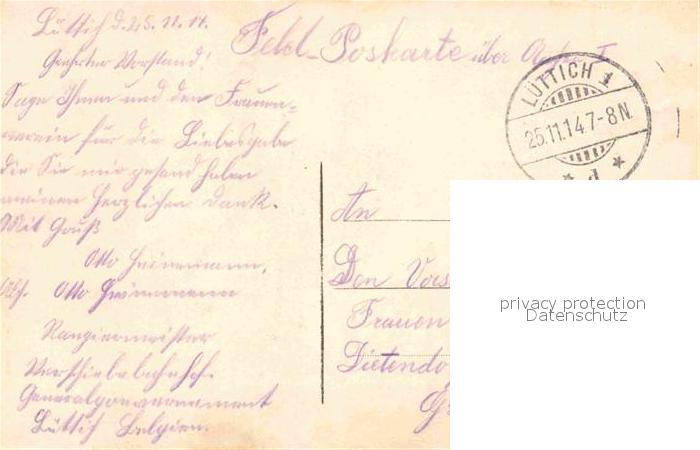 Lüttich d. 25.11.14.
Feld-Postkarte über Aachen I
Geehrter Vorstand!
Sage Ihnen und den Frauen-
verein für die Liebesgabe
die Sie mir gesand haben
meinen herzlichen Dank.
Mit Gruß
Otto Heinemann.
Abs. Otto Heinemann
Rangiermeister
Verschiebebahnhof.
Generalgouvernement
Lüttich Belgien.
LÜTTICH 1
25.11.14.7-8N.
* d *
An
Den Vors
Frauen
Dietendo
privacy protection
Datenschutz